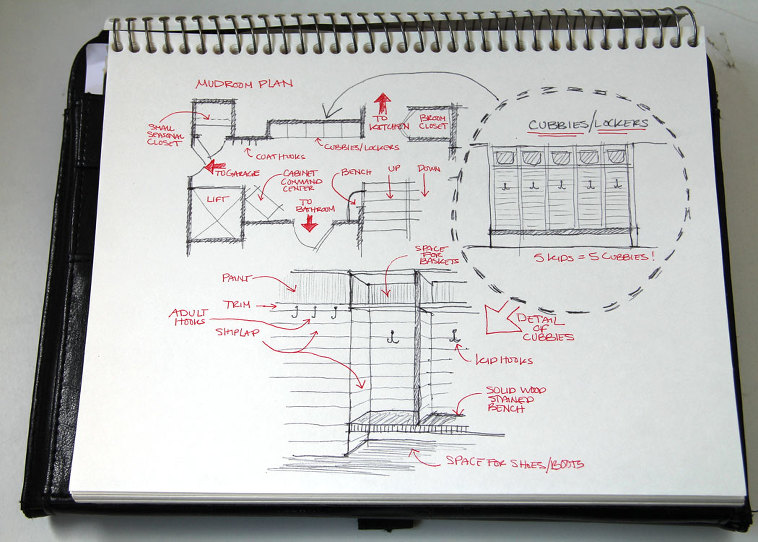 MUDROOM PLAN
SMALL
SEASONAL
CLOSET
COAT HOOKS
CUBBIES/LOCKERS
TO
KITCHEN
BROOM
CLOSET
TO GARAGE
LIFT
CABINET
COMMAND
CENTER
BENCH
UP
DOWN
TO
BATHROOM
CUBBIES/LOCKERS
5 KIDS = 5 CUBBIES!
SPACE
FOR
BASKETS
PAINT
TRIM
ADULT
HOOKS
SHIPLAP
DETAIL
OF
CUBBIES
KID HOOKS
SOLID WOOD
STAINED
BENCH
SPACE FOR SHOES/BOOTS